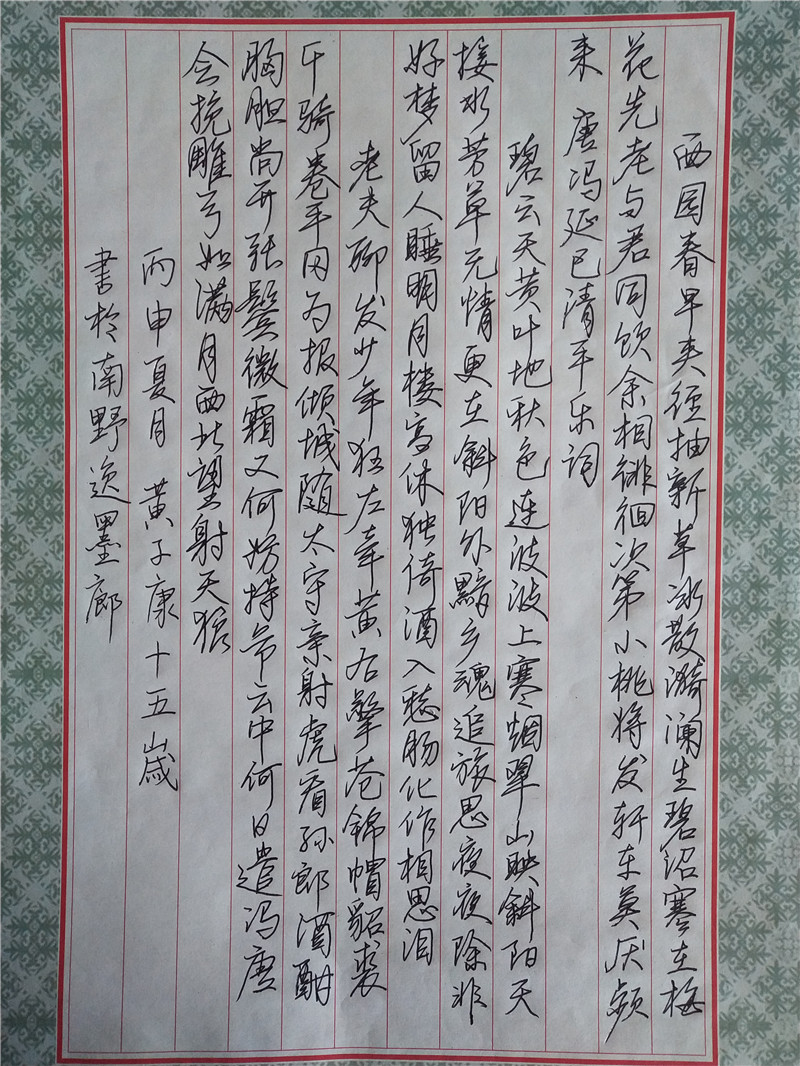 西园春早夹径抽新草冰散漪澜生碧沼寒在梅
花先老与君同饮余相徘徊次第小桃将发轩车莫厌频
来 唐冯延巳清平乐词
碧云天黄叶地秋色连波波上寒烟翠山映斜阳天
接水芳草无情更在斜阳外黯乡魂追旅思夜夜除非
好梦留人睡明月楼高休独倚酒入愁肠化作相思泪
老夫聊发少年狂左牵黄右擎苍锦帽貂裘
千骑卷平冈为报倾城随太守亲射虎看孙郎酒酣
胸胆尚开张鬓微霜又何妨持节云中何日遣冯唐
会挽雕弓如满月西北望射天狼
丙申夏月 黄子康十五歲
書於南野逸墨廊